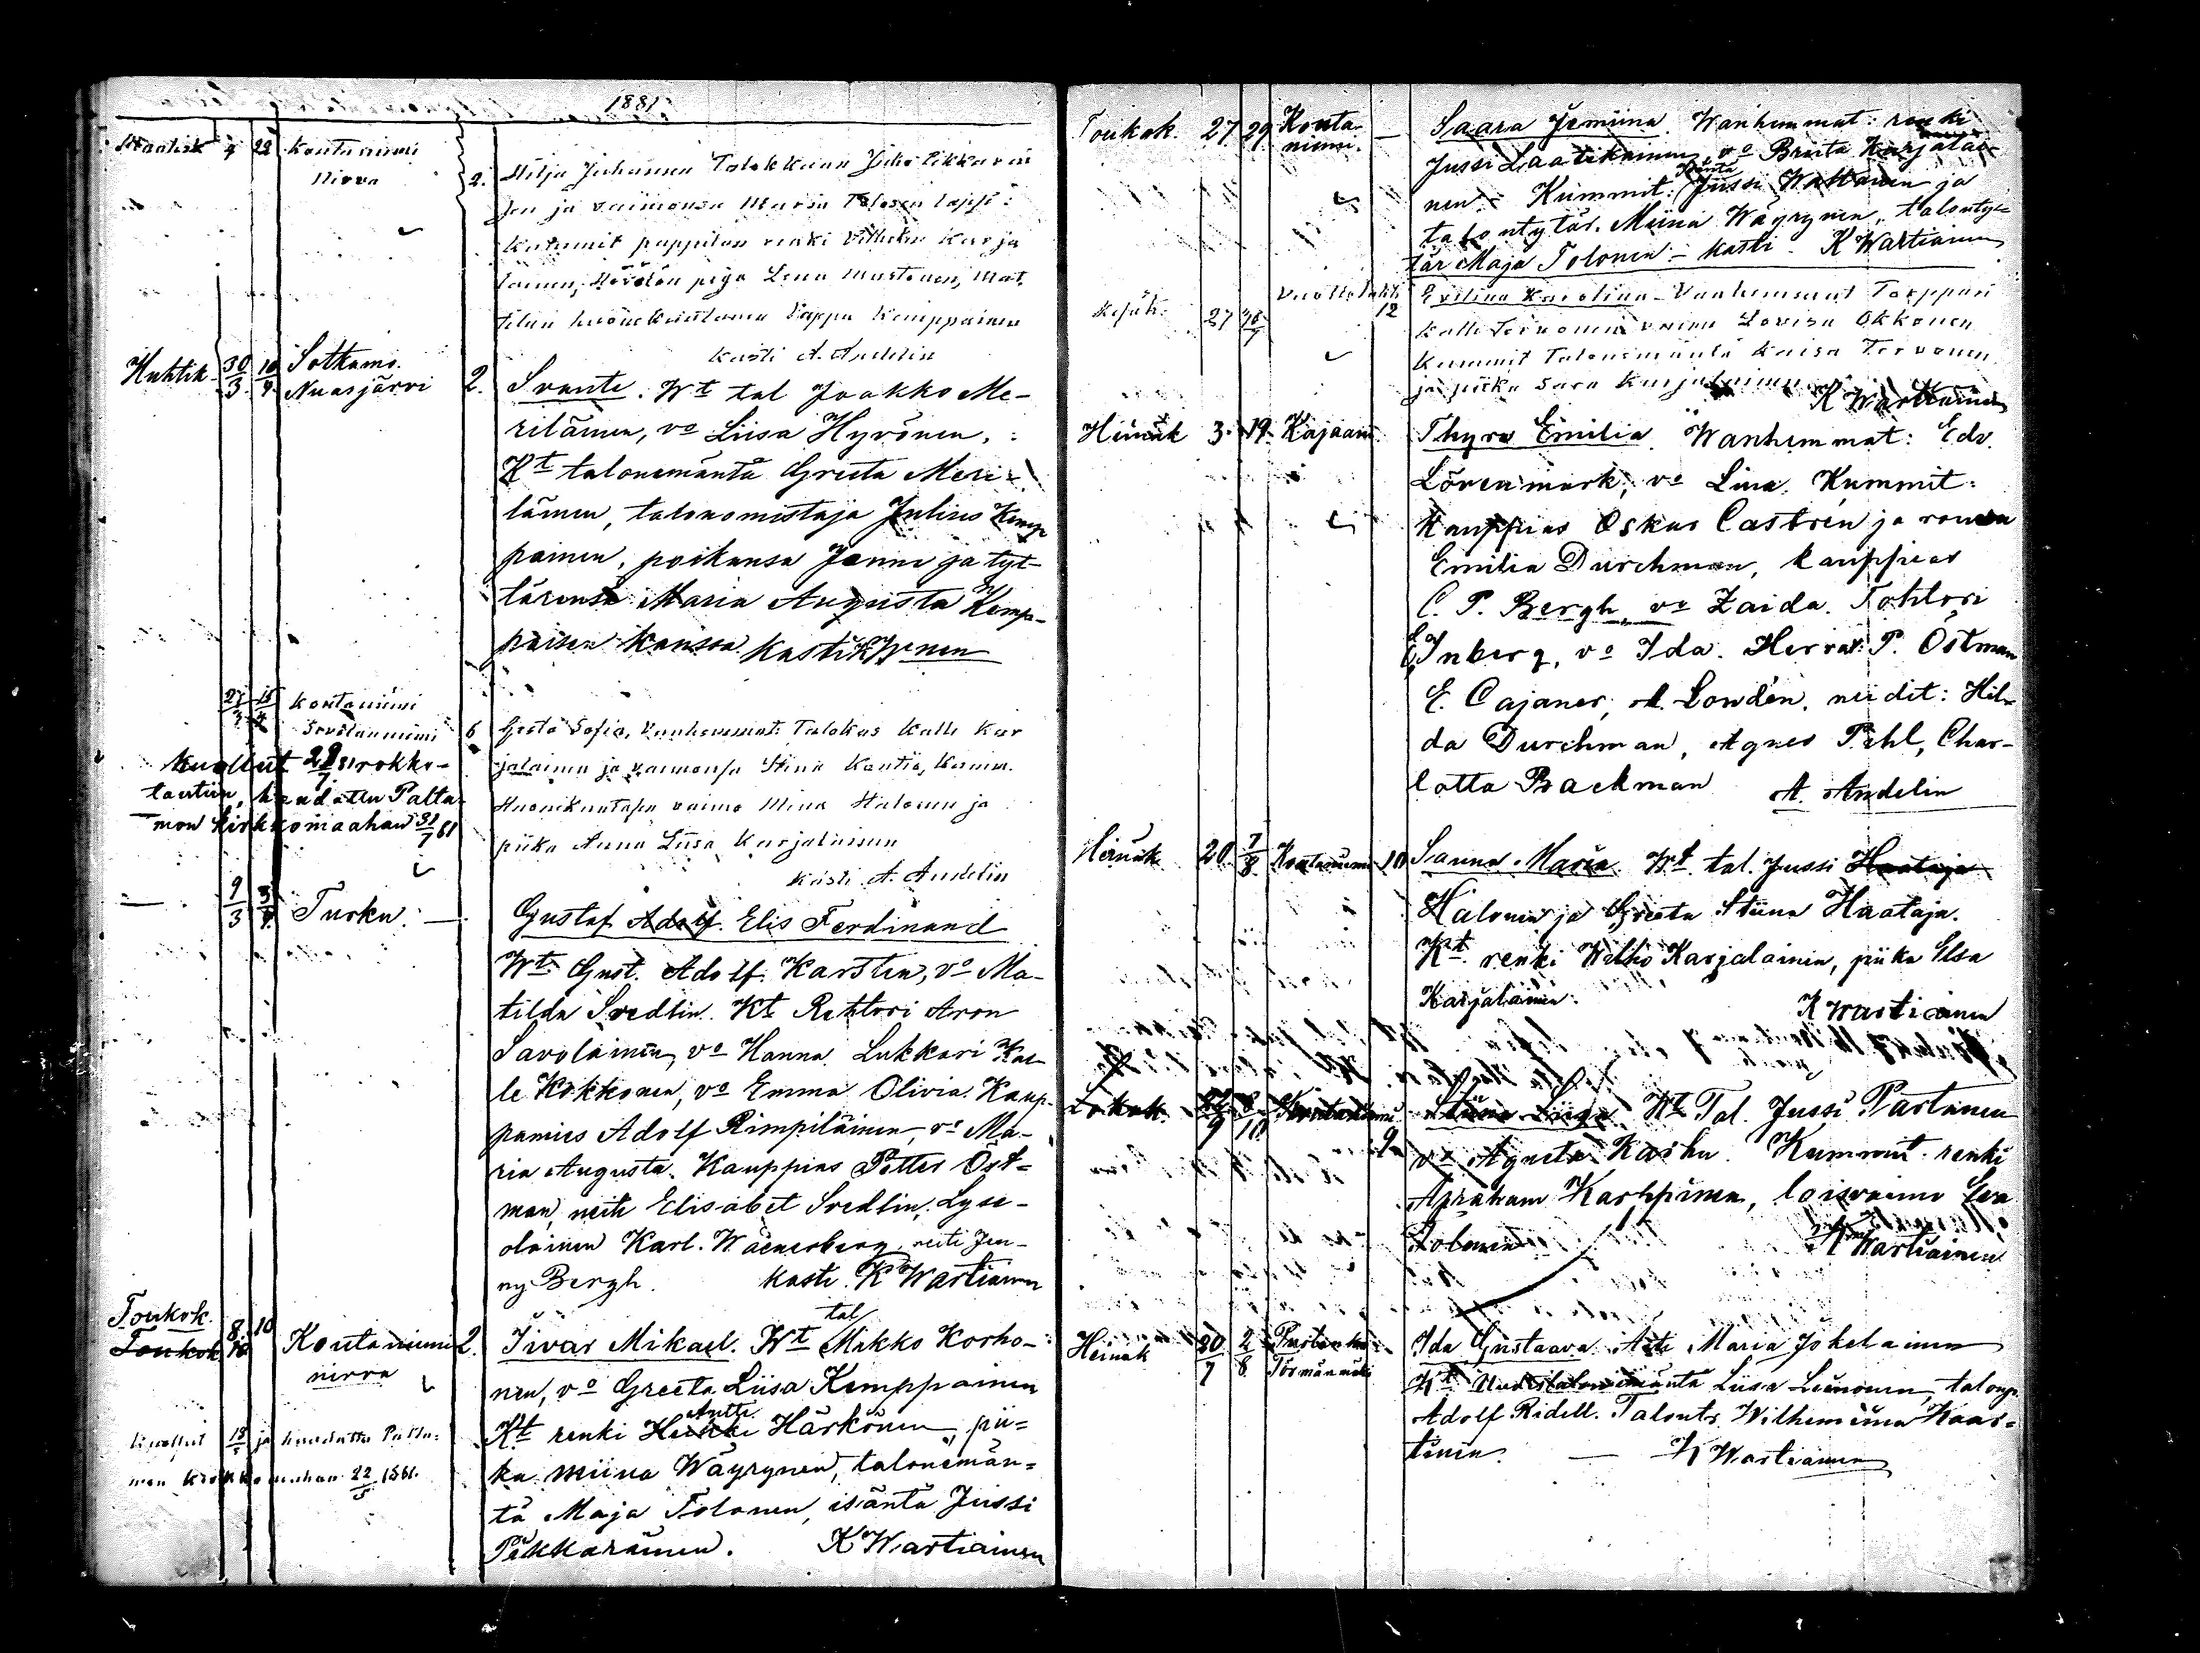 1881
Maalisk 4 22 Kontaniemi
Nirva 2. Hilja Johanna Talokkaan Juho Pikkarai
sen ja vaimonsa Maria Tolosen lapsi:
Kummit pappilan renki Vilhelm Karja
lainen, Hövölön piga Lena Mustonen, Mat.
tilan huonekuntanen Vappu Kemppainen
kasti A. Andelin
Huhtik. 30/3 10/4 Sotkamo.
Nuasjärvi 2. Svante. Wt tal Jaakko Me-
riläinen, vo Liisa Hyvönen.
Kt talonemäntä Greeta Meri-
läinen, talonomistaja Julius Kemp
painen, poikansa Janne ja tyt-
tärensä Maria Augusta Kemp-
paisen kanssa kasti KWnen
27/3 15/4 Kontaniemi
6 Greta Sofia, Vanhemmat: Talokas Kalle Kar
jalainen ja vaimonsa Stina Kontio, Kumm.
Huonekuntasen vaimo Mina Halonen ja
piika Anna Liisa Karjalainen
kasti A. Andelin
Kuollut 28/7 81 rokko-
tautiin, haudattu Palta-
mon kirkkomaahan 31/7 81
— 9/3 3/4 Turku. — Gustaf Adolf Elis Ferdinand
Wt Gust. Adolf Karsten, vo Ma-
tilda Svedlin. Kt Rehtori Aron
Savolainen, vo Hanna Lukkari Kal-
le Kokkonen, vo Emma Olivia. Kaup-
pamies Adolf Rimpiläinen, vo Ma-
ria Augusta. Kauppias Petter Öst-
man, neiti Elisabet Svedlin, Lyse-
olainen Karl. Wacnerberg, neiti Jen-
ny Bergh. kasti. K Wartiainen
Toukok. 8 10
Toukok Kontaniemi 2. Iivar Mikael. Wt tal Mikko Korho-
nirva nen, vo Greeta Liisa Kemppainen
Kt renki Heikki Antti Härkönen, pii-
ka Miina Wäyrynen, talonemän-
tä Maja Tolonen, isäntä Jussi
Pikkarainen. K Wartiainen
Kuollut 18/5 ja haudattu Palta-
mon kirkkomaahan 22/5 1881.
Toukok. 27 29 Konta-
niemi. — Saara Jemiina. Wanhemmat: renki
Jussi Laatikainen, vo Briita Karjalai-
nen. Kummit: Isäntä Jussi Wattanen ja
talontytär. Miina Wäyrynen, talonty-
tär Maja Tolonen — kasti K Wartiainen
Kesäk. 27 10/7 Vuottolahti
12 Evelina Karolina. Vanhemmat Torppari
Kalle Tervonen vaimo Lovisa Okkonen
Kummit Talonemäntä Kaisa Tervonen
ja piika Sara Karjalainen.
K Wartiainen
Heinäk 3. 19. Kajaani. Thyra Emilia. Wanhemmat: Edv.
Lövenmark, vo Lina. Kummit:
Kauppias Oskar Castrén ja rouva
Emilia Durchman, kauppias
C. P. Bergh, vo Zaida. Tohtori
E Inberg, vo Ida. Herrat: P. Östman
E. Cajaner, A. Lowdén, neidit: Hil-
da Durchman, Agnes Pehl, Char-
lotta Backman A. Andelin
Heinäk. 20. 7/8 Kontaniemi 10 Sanna Maria Wt tal. Jussi Haataja
Halonen ja Greeta Stiina Haataja.
Kt. renki Wilho Karjalainen, piika Elsa
Karjalainen.
K Wartiainen
Lokak. Kontaniemi 9 Stiina Liisa. Wt Tal. Jussi Partanen
vo Agneta Karhu. Kummit renki
Apraham Karppinen, loisvaimo Eva
Tolonen K Wartiainen
Heinäk 30/7 2/8 Ida Gustaava. Äiti Maria Jokelainen
Törmänmäki Kt Uudistalonemäntä Liisa Leinonen, talonp.
Adolf Ridell. Talontr. Wilhemiina Kaar-
tinen. — K Wartiainen